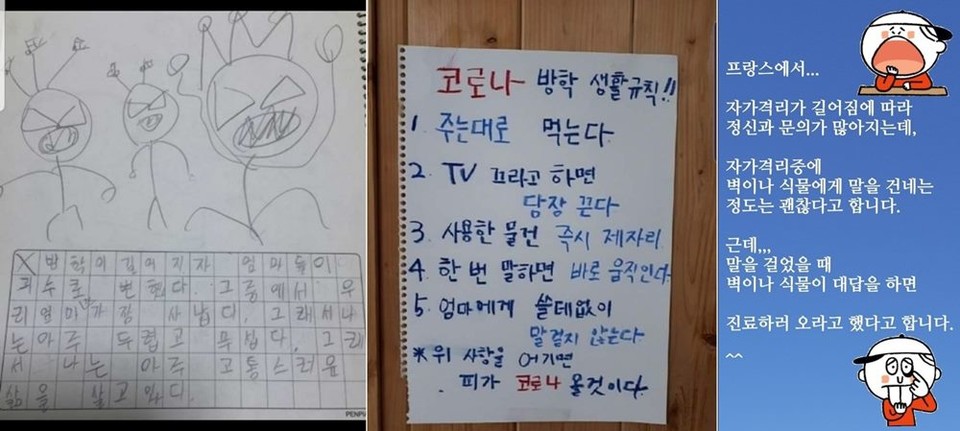 X 방학이 길어지자 엄마들이
괴수로 변했다. 그중에서 우
리엄마가장 사납다. 그래서나
는아주 두렵고 무섭다. 그래
서 나는 아주 고통스러운
삶을 살고있다.
코로나 방학 생활규칙!!
1. 주는대로 먹는다
2. TV 끄라고 하면
당장 끈다
3. 사용한 물건 즉시 제자리
4. 한 번 말하면 바로 움직인다
5. 엄마에게 쓸데없이
말걸지 않는다
* 위 사항을 어기면
피가 코로나 올것이다.
프랑스에서...
자가격리가 길어짐에 따라
정신과 문의가 많아지는데,
자가격리중에
벽이나 식물에게 말을 건네는
정도는 괜찮다고 합니다.
근데,,,
말을 걸었을 때
벽이나 식물이 대답을 하면
진료하러 오라고 했다고 합니다.
^^